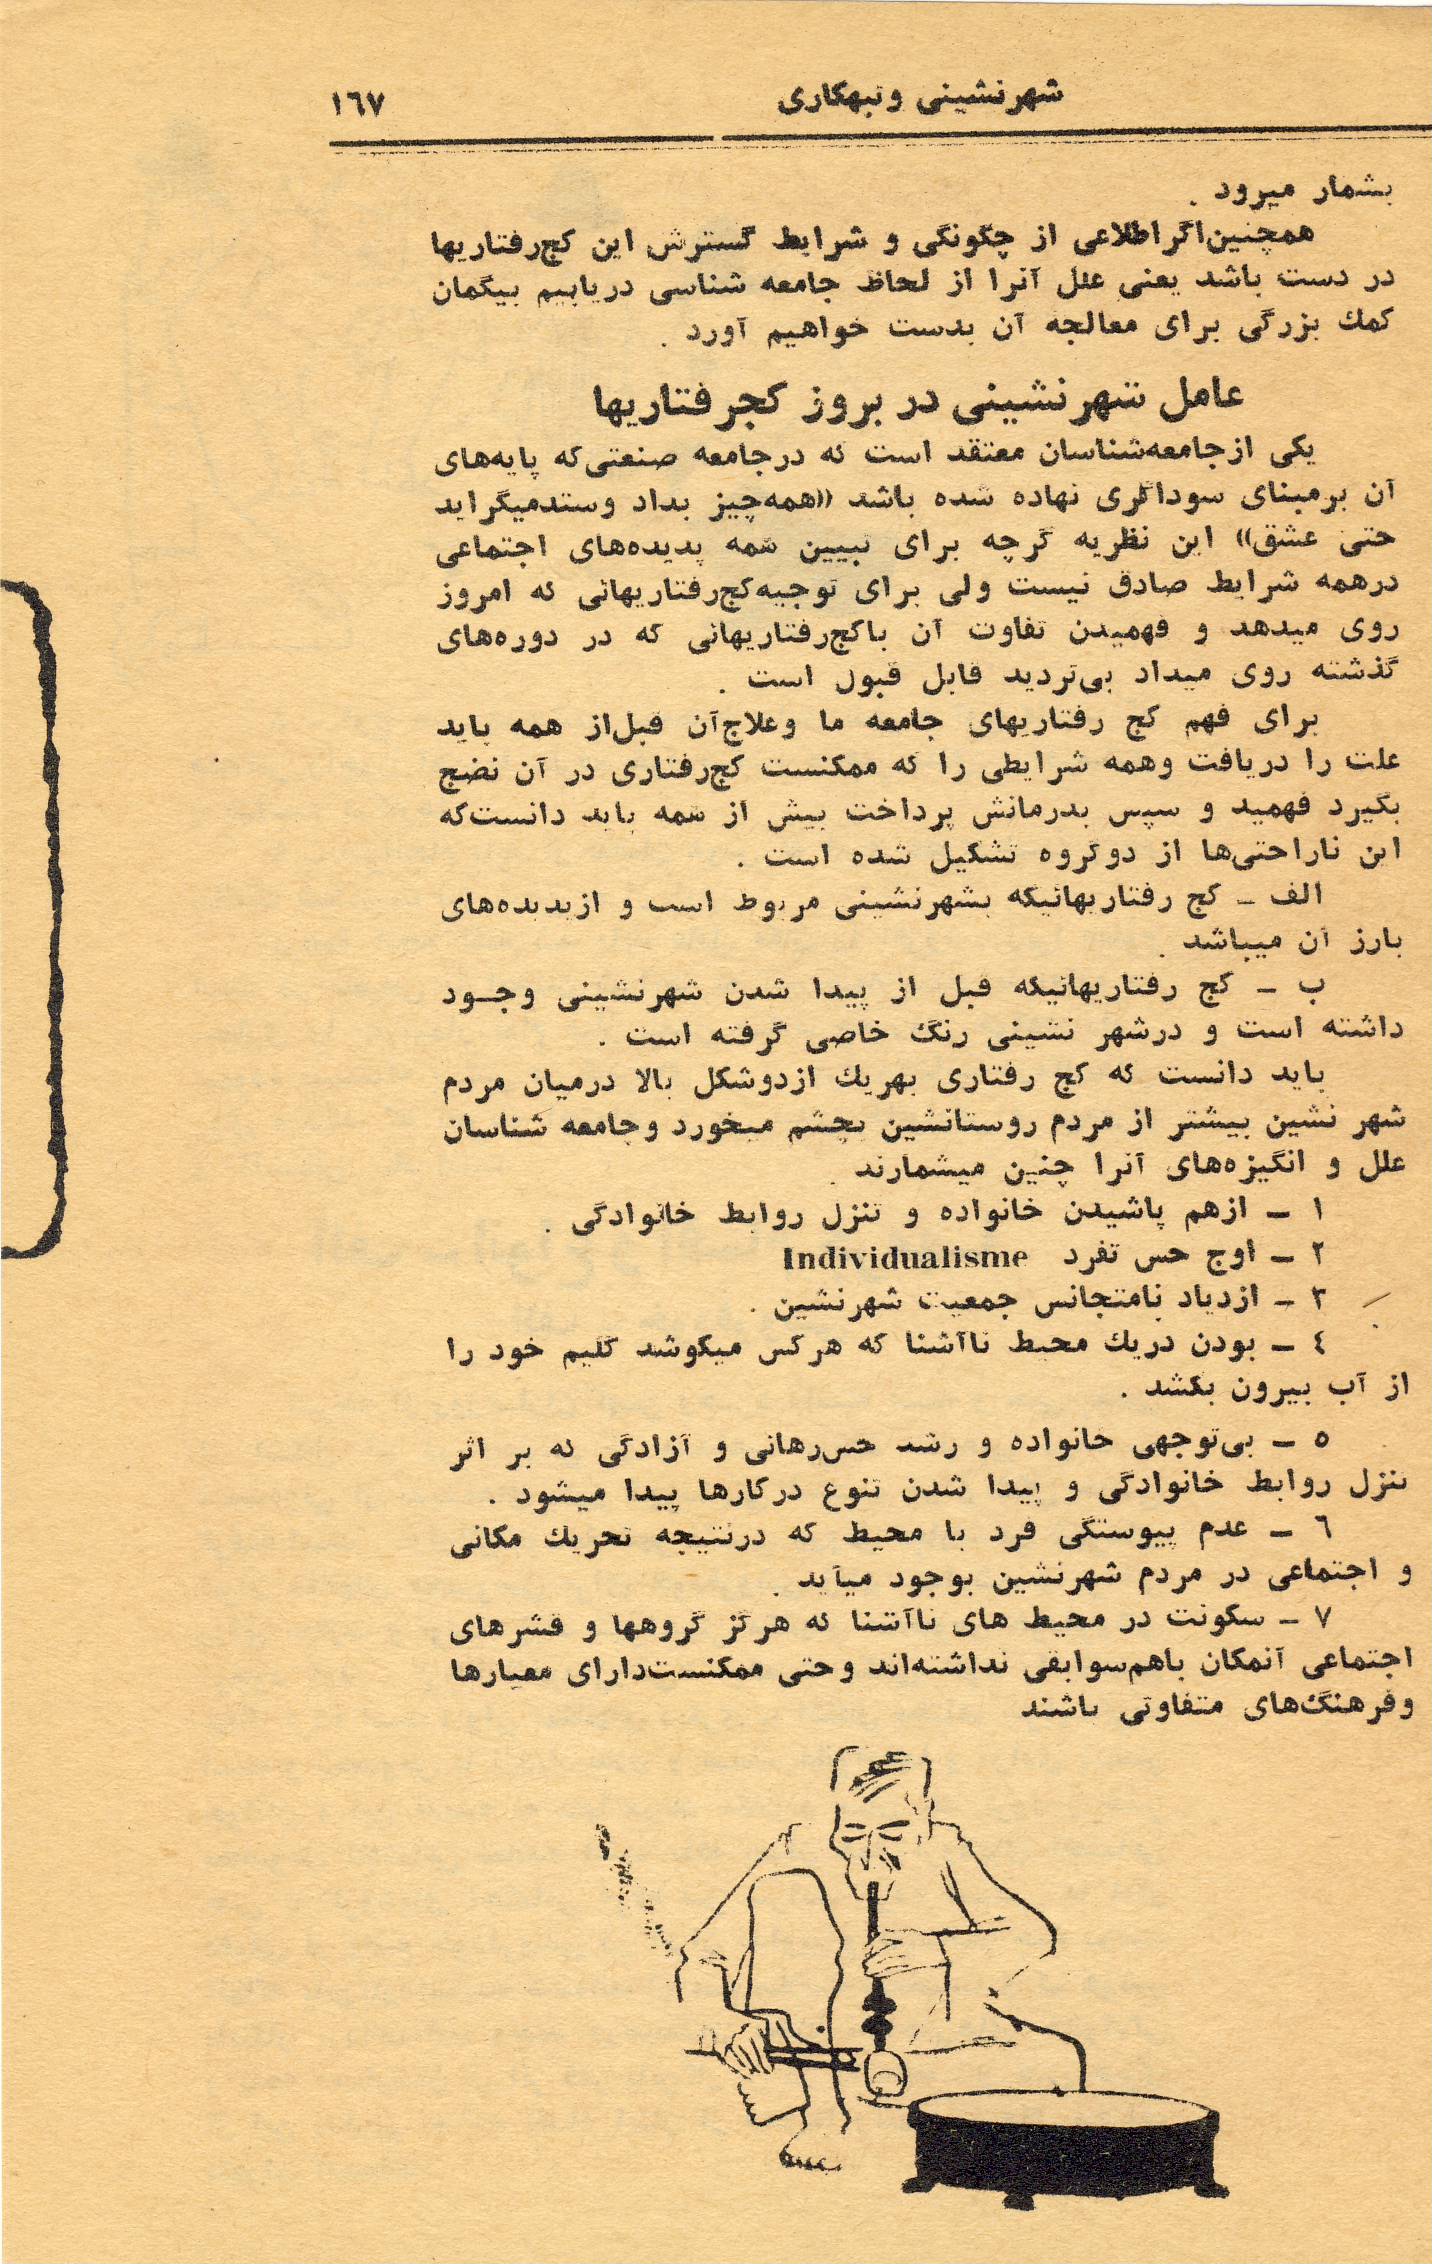 شهرنشینی وتبهکاری
١٦٧
بشمار میرود .
همچنین‌اگراطلاعی از چگونگی و شرایط گسترش این کج‌رفتاریها
در دست باشد یعنی علل آنرا از لحاظ جامعه شناسی دریابیم بیگمان
کمك بزرگی برای معالجه آن بدست خواهیم آورد .
عامل شهرنشینی در بروز کجرفتاریها
یکی ازجامعه‌شناسان معتقد است که درجامعه صنعتی‌که پایه‌های
آن برمبنای سوداگری نهاده شده باشد «همه‌چیز بداد وستدمیگراید
حتی عشق» این نظریه گرچه برای تبیین همه پدیده‌های اجتماعی
درهمه شرایط صادق نیست ولی برای توجیه‌کج‌رفتاریهائی که امروز
روی میدهد و فهمیدن تفاوت آن باکج‌رفتاریهائی که در دوره‌های
گذشته روی میداد بی‌تردید قابل قبول است .
برای فهم کج رفتاریهای جامعه ما وعلاج‌آن قبل‌از همه باید
علت را دریافت وهمه شرایطی را که ممکنست کج‌رفتاری در آن نضج
بگیرد فهمید و سپس بدرمانش پرداخت بیش از همه باید دانست‌که
این ناراحتی‌ها از دوگروه تشکیل شده است .
الف ـ کج رفتاریهائیکه بشهرنشینی مربوط است و ازپدیده‌های
بارز آن میباشد .
ب ـ کج رفتاریهائیکه قبل از پیدا شدن شهرنشینی وجـود
داشته است و درشهر نشینی رنگ خاصی گرفته است .
باید دانست که کج رفتاری بهریك ازدوشکل بالا درمیان مردم
شهر نشین بیشتر از مردم روستانشین بچشم میخورد وجامعه شناسان
علل و انگیزه‌های آنرا چنین میشمارند .
١ ـ ازهم پاشیدن خانواده و تنزل روابط خانوادگی .
٢ ـ اوج حس تفرد Individualisme
٣ ـ ازدیاد نامتجانس جمعیت شهرنشین .
٤ ـ بودن دریك محیط ناآشنا که هرکس میکوشد گلیم خود را
از آب بیرون بکشد .
٥ ـ بی‌توجهی خانواده و رشد حس‌رهائی و آزادگی که بر اثر
تنزل روابط خانوادگی و پیدا شدن تنوع درکارها پیدا میشود .
٦ ـ عدم پیوستگی فرد با محیط که درنتیجه تحریك مکانی
و اجتماعی در مردم شهرنشین بوجود میآید .
٧ ـ سکونت در محیط های ناآشنا که هرگز گروهها و قشرهای
اجتماعی آنمکان باهم‌سوابقی نداشته‌اند وحتی ممکنست‌دارای معیارها
وفرهنگ‌های متفاوتی باشند